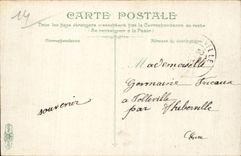 14
CARTE POSTALE
Tous les pays étrangers n'acceptent pas la Correspondance au recto
Se renseigner à la Poste
Correspondance
Adresse du destinataire
Mademoiselle
Germaine
souvenir
à Tolleville
par
Eure